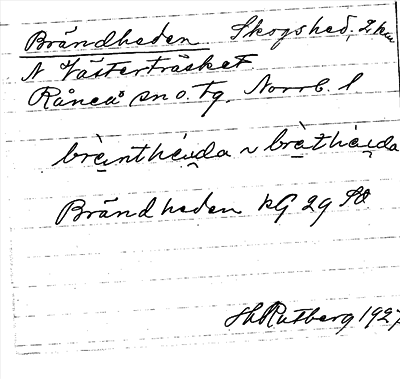 Brändheden Skogshed, 2 km
N Västerträsket.
Råneå sn o. tg. Norrb. l
brèntheda ~ brètheda
Brändheden kG 29 SO
H Rutberg 1927